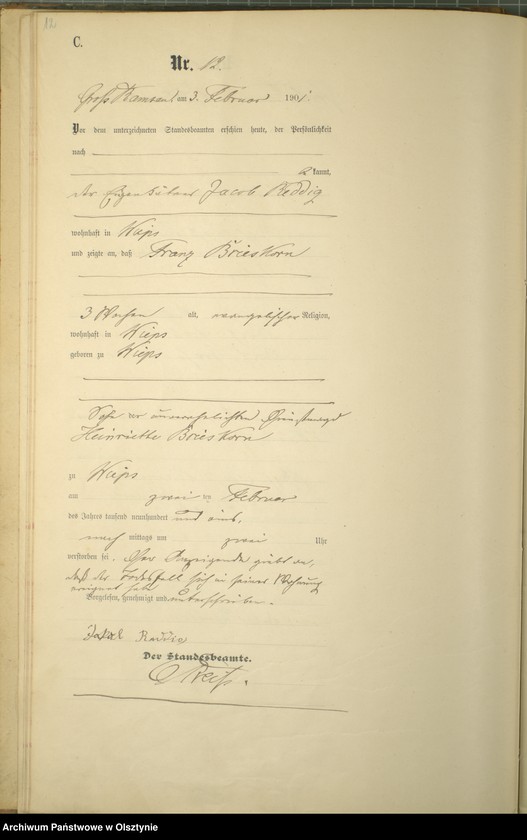 12
C.
Nr. 12.
Groß Ramsau am 3. Februar 1901.
Vor dem unterzeichneten Standesbeamten erschien heute, der Persönlichkeit
nach
kannt,
der Eigenkätner Jacob Reddig
wohnhaft in Wips
und zeigte an, daß Franz Brieskorn
3 Wochen alt, evangelischer Religion,
wohnhaft in Wieps
geboren zu Wieps
Sohn der unverehelichten
Henriette Brieskorn
zu Wieps
am zwei ten Februar
des Jahres tausend neunhundert und eins,
nach mittags um zwei Uhr
verstorben sei. Der Anzeigende giebt an,
daß der Todesfall sich in seiner Wohnung
ereignet hat
Vorgelesen, genehmigt und unterschrieben.
Reddig
Der Standesbeamte.
Archiwum Państwowe w Olsztynie